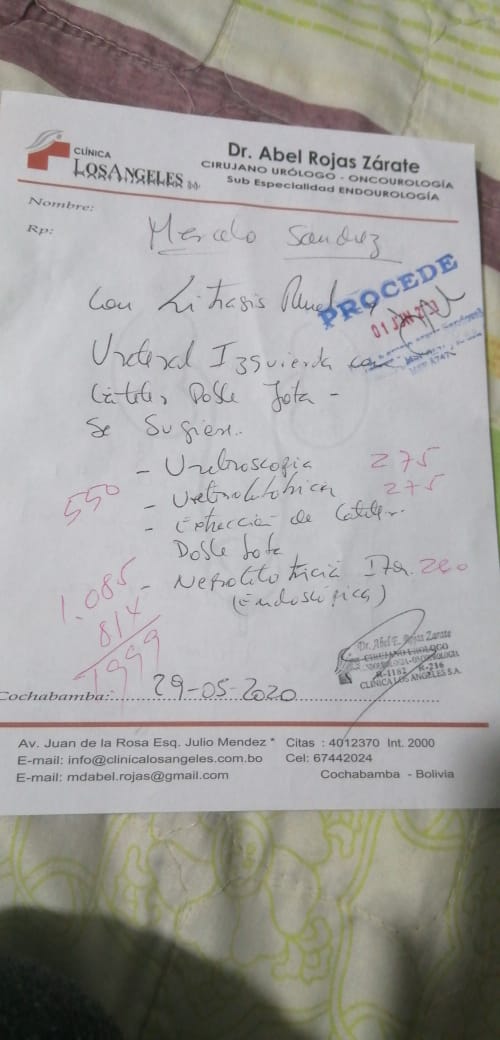 CLÍNICA
LOSANGELES
Dr. Abel Rojas Zárate
CIRUJANO URÓLOGO - ONCOUROLOGÍA
Sub Especialidad ENDOUROLOGÍA
Nombre:
Rp:
Sandez
PROCEDE
01 JUN
Con Litiasis
Ureteral Izquierda
Catéter Doble Jota -
Se Sugiere.
- Uretroscopia 275
550
275
- Extracción de Catéter
Doble Jota
- Nefrolitotricia Izq. 260
(Endoscópica)
1.085
814
1999
Dr. Abel E. Rojas Zarate
CIRUJANO UROLOGO
R-1182 R-216
CLINICA LOS ANGELES S.A.
Cochabamba: 29-05-2020
Av. Juan de la Rosa Esq. Julio Mendez * Citas : 4012370 Int. 2000
E-mail: info@clinicalosangeles.com.bo Cel: 67442024
E-mail: mdabel.rojas@gmail.com Cochabamba - Bolivia